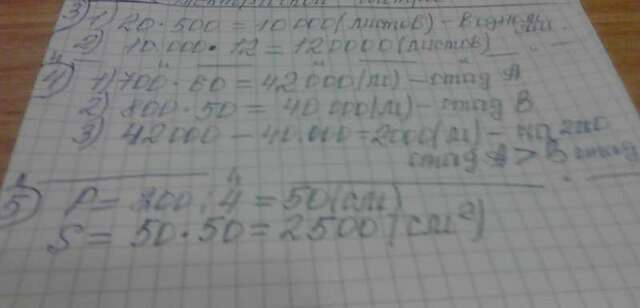 3) 1) 20 · 500 = 10 000 (листов) -
2) 10.000 · 12 = 120000 (листов)
4) 1) 700 · 60 = 42000 (м) - стад A
2) 800 · 50 = 40 000 (м) - стад B
3) 42000 - 40.000 = 2000 (м) - на 2000
стад A > B стад
5) P = 200 : 4 = 50 (см)
S = 50 · 50 = 2500 (см²)